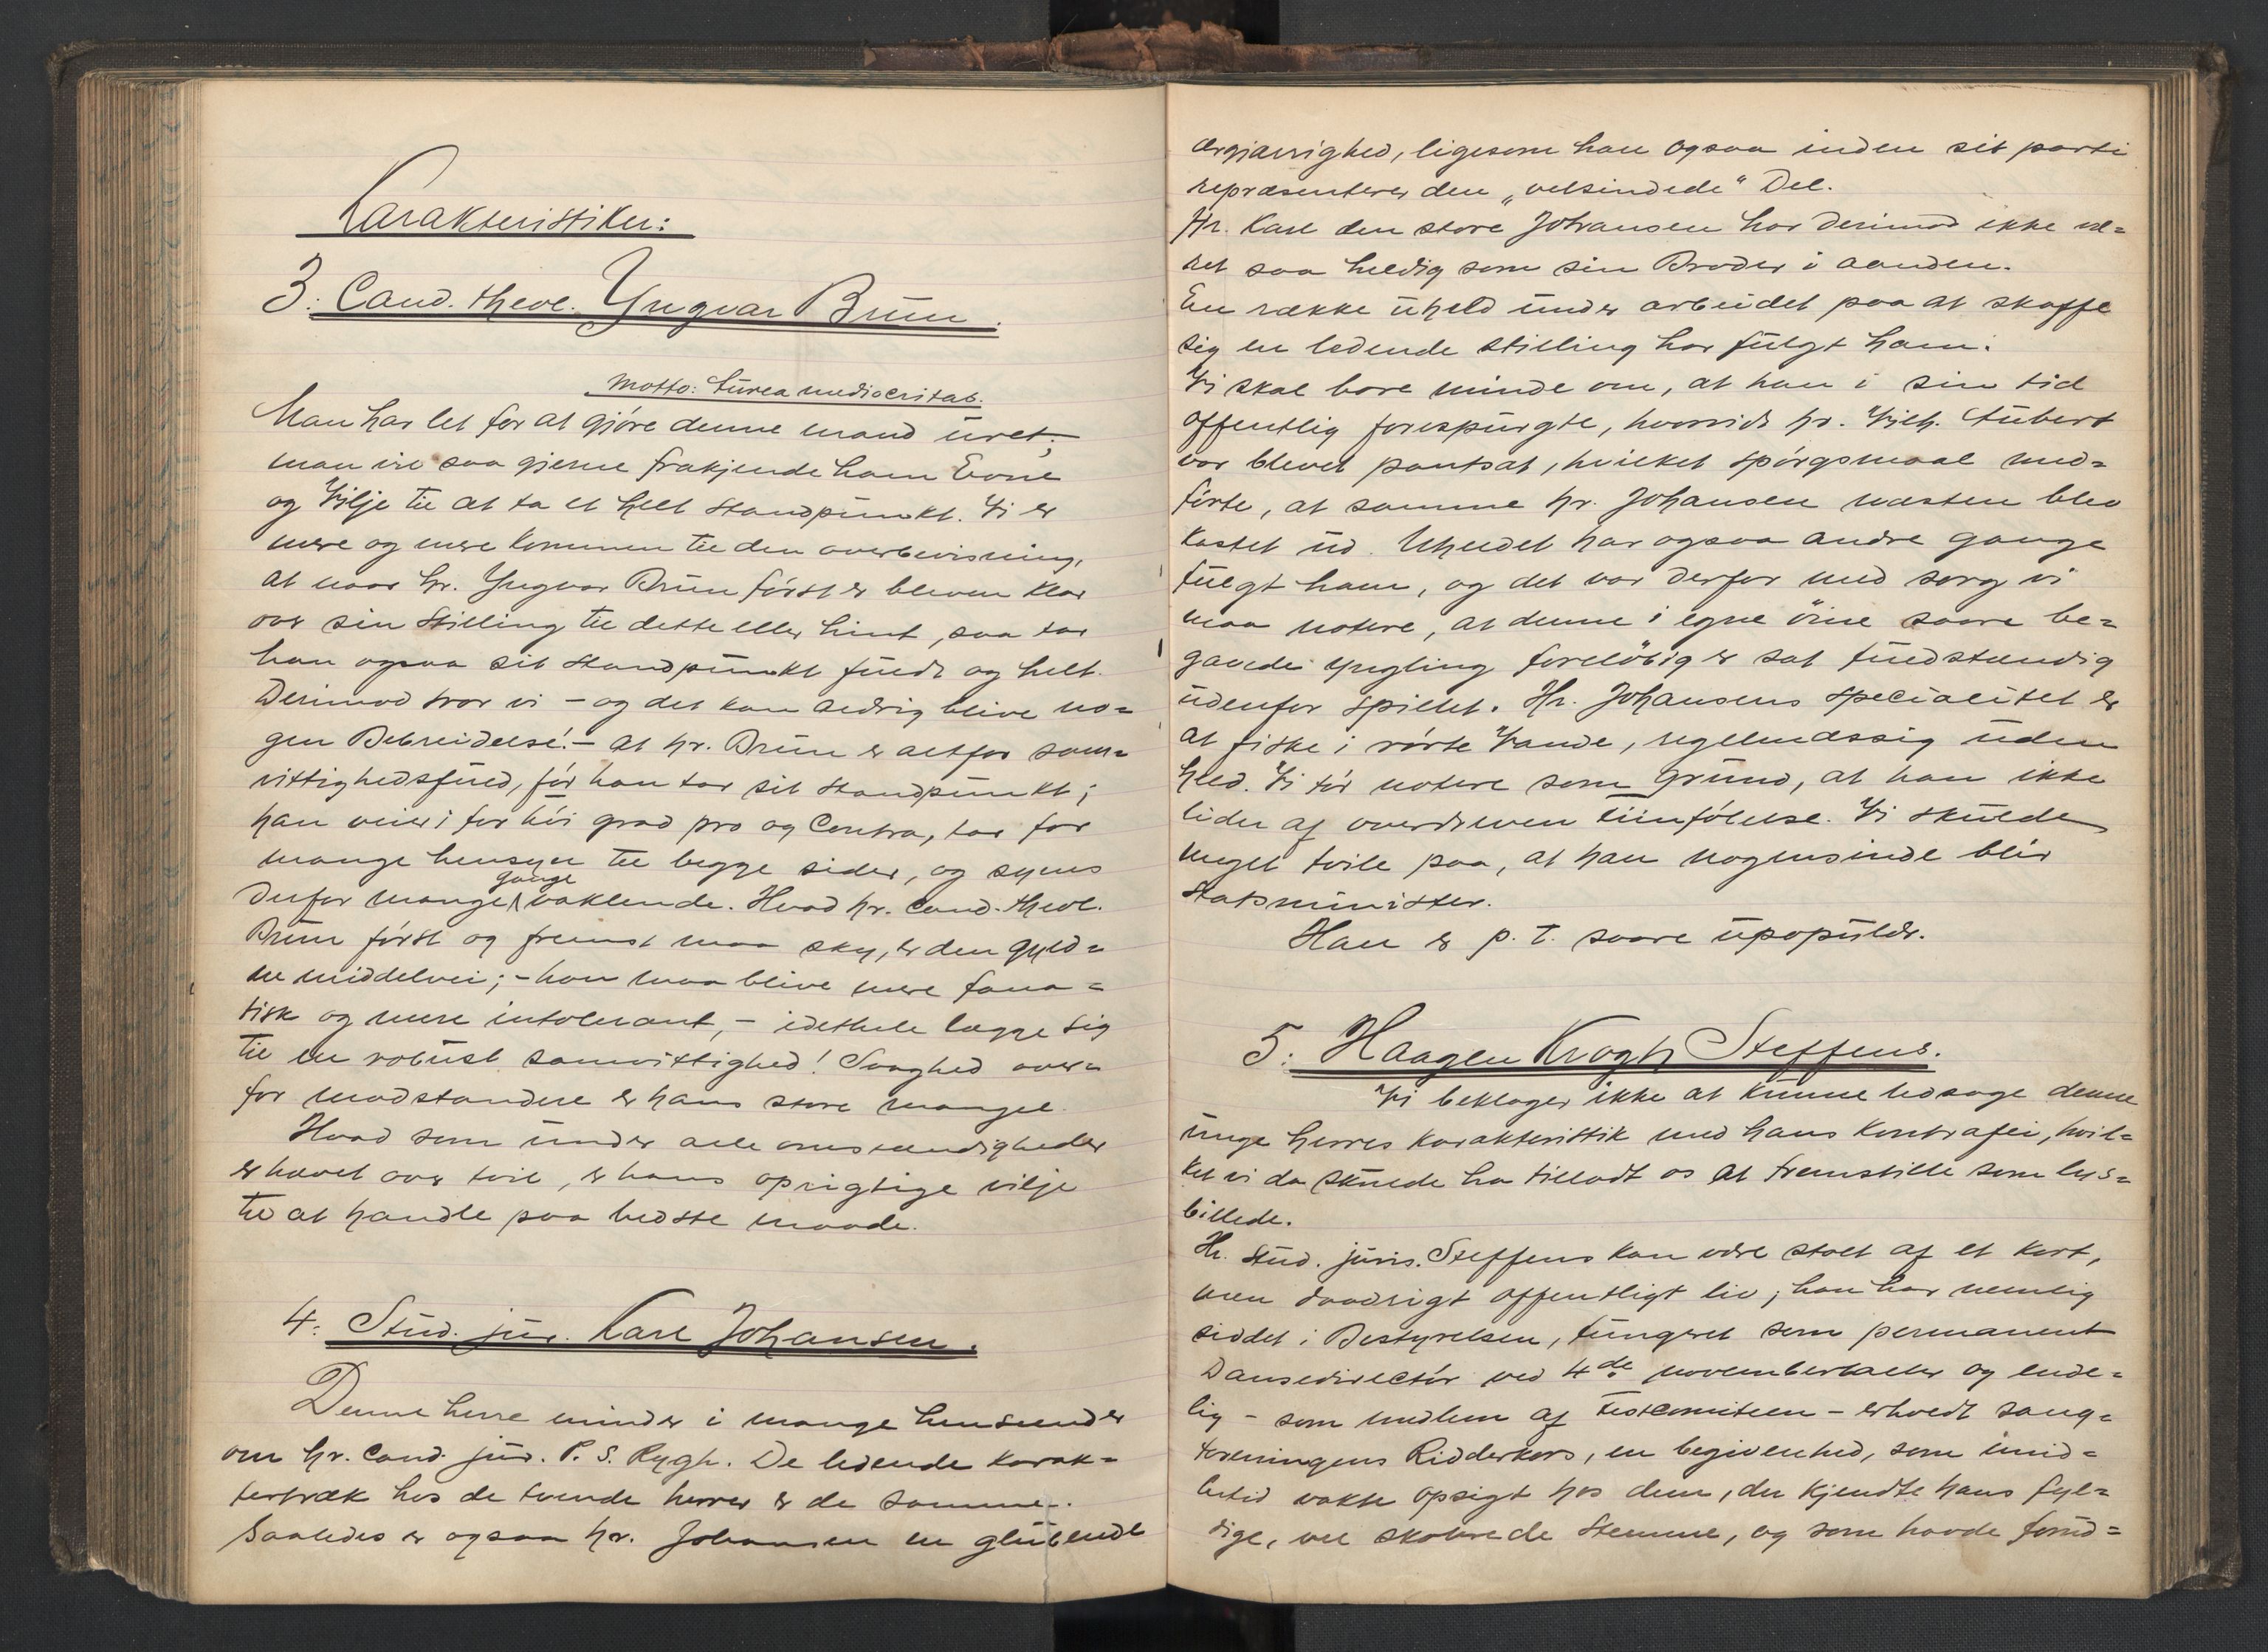 Karakteristiker:
3: Cand. theol. Yngvar Brun.
Motto: Aurea mediocritas.
Man har let for at gjøre denne mand uret;
man vil saa gjerne frakjende ham Evne
og Vilje til at ta et helt standpunkt. Vi er
mere og mere kommen til den overbevisning,
at naar hr. Yngvar Brun først er bleven klar
over sin Stilling til dette eller hint, saa tar
han ogsaa sit standpunkt fuldt og helt.
Derimod tror vi – og det kan aldrig blive no=
gen Bebreidelse! – at hr. Brun er altfor sam=
vittighedsfuld, før han tar sit standpunkt;
han veier i for høi grad pro og Contra, tar for
mange hensyn til begge sider, og synes
derfor mange gange vaklende. Hvad hr. cand. theol.
Brun først og fremst maa sky, er den gyld=
ne middelvei; – han maa blive mere fana=
tisk og mere intolerant, – idethele lægge sig
til en robust samvittighed! Svaghed over=
for modstandere er hans store mangel.
Hvad som under alle omstændigheder
er hævet over tvil, er hans oprigtige vilje
til at handle paa bedste maade.
4: Stud. jur. Karl Johansen.
Denne herre minder i mange henseender
om hr. cand. jur. P. S. Rygh. De ledende karak=
tertræk hos de tvende herrer er de samme.
Saaledes er ogsaa hr. Johansen en glühende
ærgjærrighed, ligesom han ogsaa inden sit parti
repræsenterer den „velsindede" Del.
Hr. Karl den store Johansen har derimod ikke væ=
ret saa heldig som sin Broder i aanden.
En række uheld under arbeidet paa at skaffe
sig en ledende stilling har fulgt ham.
Vi skal bare minde om, at han i sin tid
offentlig forespurgte, hvorvidt hr. Vilh. Stubert
var blevet pantsat, hvilket spørgsmaal med=
førte, at samme hr. Johansen næsten blev
kastet ud. Uheldet har ogsaa andre gange
fulgt ham, og det var derfor med sorg vi
maa notere, at denne i egne öine saare be=
gavede yngling foreløbig er sat fuldstændig
udenfor spillet. Hr. Johansens specialitet er
at fiske i rørte Vande, regelmæssig uden
held. Vi tør notere som grund, at han ikke
lider af overdreven fiinfølelse. Vi skulde
meget tvile paa, at han nogensinde blir
Statsminister.
Han er p. t. saare upopulær.
5: Haagen Krogh Steffens.
Vi beklager ikke at kunne ledsage denne
unge herres karakteristik med hans kontrafei, hvil=
ket vi da skulde ha tilladt os at fremstille som lys=
billede.
Hr. Stud. juris. Steffens kan være stolt af et kort,
men daadrigt offentligt liv; han har nemlig
siddet i Bestyrelsen, fungeret som permanent
Dansedirectör ved 4de novemberballer og ende=
lig – som medlem af Festcomiteen – erholdt sang=
foreningens Ridderkors, en begivenhed, som imid=
lertid vakte opsigt hos dem, der kjendte hans fyl=
dige, vel skolerede Stemme, og som havde forud=